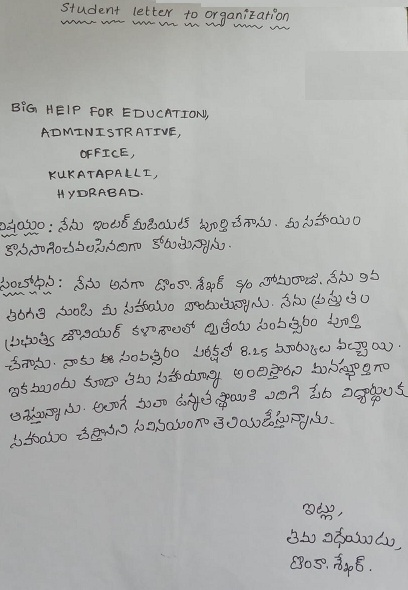 Student letter to organization
BIG HELP FOR EDUCATION,
ADMINISTRATIVE,
OFFICE,
KUKATAPALLI,
HYDRABAD.
విషయం : నేను ఇంటర్ మీడియట్ పూర్తి చేశాను. మీ సహాయం
కొనసాగించవలసినదిగా కోరుతున్నాను.
సంబోధన : నేను అనగా దొంకా. శేఖర్ S/o సోమరాజు. నేను 9వ
తరగతి నుండి మీ సహాయం పొందుతున్నాను. నేను ప్రస్తుతం
ప్రభుత్వ జూనియర్ కళాశాలలో ద్వితీయ సంవత్సరం పూర్తి
చేశాను. నాకు ఈ సంవత్సరం పరీక్షలో 8.25 మార్కులు వచ్చాయి.
ఇకముందు కూడా తమ సహాయాన్ని అందిస్తారని మనస్ఫూర్తిగా
ఆశిస్తున్నాను. అలాగే మలా ఉన్నత స్థాయికి ఎదిగి పేద విద్యార్థులకు
సహాయం చేస్తానని సవినయంగా తెలియజేస్తున్నాను.
ఇట్లు,
తమ విధేయుడు,
దొంకా. శేఖర్.